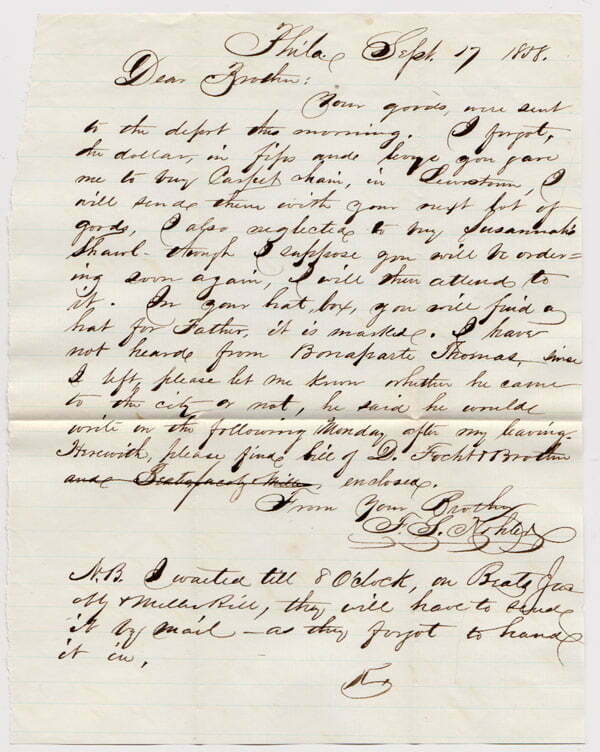 Phila. Sept. 17 1858.
Dear Brother:
Your goods, were sent
to the depot this morning. I forgot,
the dollar, in fips and you gave
me to buy Carpet chain, in Lewistown, I
will send them with your next lot of
goods, I also neglected to buy Susannah's
Shawl - though I suppose you will be order=
ing soon again, I will then attend to
it. In your hat box, you will find a
hat for Father, it is marked. I have
not heard from Bonaparte Thomas, since
I left, please let me know whether he came
to the city or not, he said he would
write on the following Monday after my leaving.
Herewith, please find bill of D. Focht & Brother
and enclosed.
From Your Brother
F. S. Kohler
N.B. I waited till 8 O'Clock, on
& Miller bill, they will have to send
it by mail - as they forgot to hand
it in,
K.